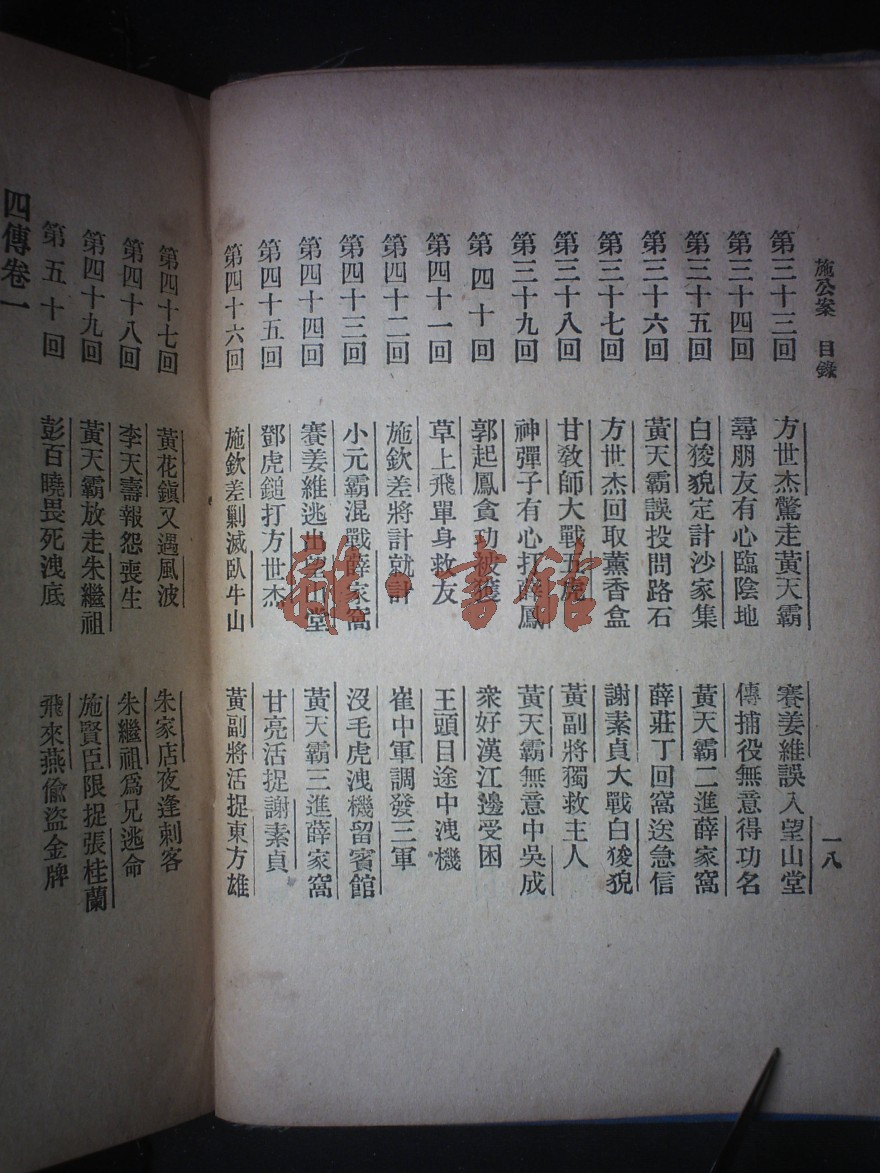 施公案 目錄
一八
第三十三回 方世杰驚走黃天霸 賽姜維誤入望山堂
第三十四回 尋朋友有心臨陰地 傳捕役無意得功名
第三十五回 白狻猊定計沙家集 黃天霸二進薛家窩
第三十六回 黃天霸誤投問路石 薛莊丁回窩送急信
第三十七回 方世杰回取薰香盒 謝素貞大戰白狻猊
第三十八回 甘教師大戰五虎 黃副將獨救主人
第三十九回 神彈子有心打薛鳳 黃天霸無意中吳成
第四十回 郭起鳳貪功被獲 衆好漢江邊受困
第四十一回 草上飛單身救友 王頭目途中洩機
第四十二回 施欽差將計就計 崔中軍調發三軍
第四十三回 小元霸混戰薛家窩 沒毛虎洩機留賓館
第四十四回 賽姜維逃出望山堂 黃天霸三進薛家窩
第四十五回 鄧虎鎚打方世杰 甘亮活捉謝素貞
第四十六回 施欽差剿滅臥牛山 黃副將活捉東方雄
第四十七回 黃花鎮又遇風波 朱家店夜逢刺客
第四十八回 李天壽報怨喪生 朱繼祖爲兄逃命
第四十九回 黃天霸放走朱繼祖 施賢臣限捉張桂蘭
第五十回 彭百曉畏死洩底 飛來燕偸盜金牌
四傳卷一
雜·書館